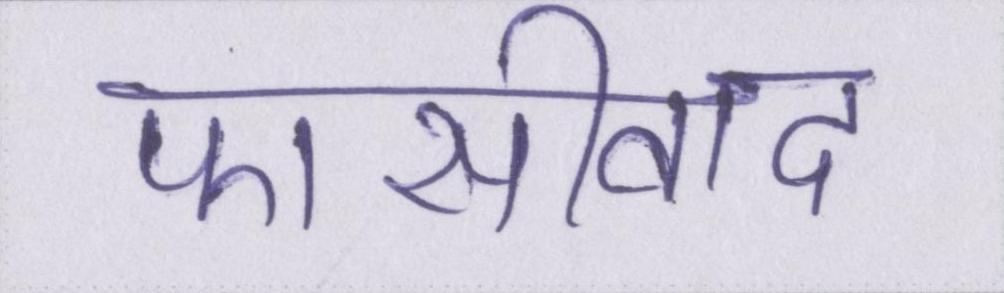 फासीवाद